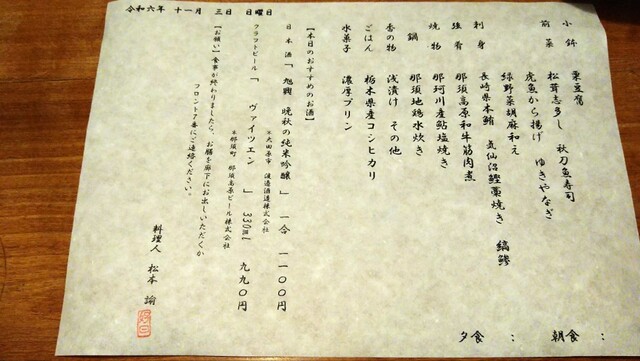 小鉢　栗豆腐
前菜　松茸志多し　秋刀魚寿司
虎魚から揚げ　ゆきやなぎ
緑野菜胡麻和え
刺身　長崎県本鮪　気仙沼鰹藁焼き　縞鯵
強肴　那須高原和牛筋肉煮
焼物　那珂川産鮎塩焼き
鍋　那須地鶏水炊き
香の物　浅漬け　その他
ごはん　栃木県産コシヒカリ
水菓子　濃厚プリン
【本日のおすすめのお酒】
日本酒「旭興　晩秋の純米吟醸」　一合　一一〇〇円
*大田原市　渡邉酒造株式会社
クラフトビール「　ヴァイツェン　」　330ml　九九〇円
*那須町　那須高原ビール株式会社
【お願い】食事が終わりましたら、お膳を廊下にお出しいただくか
フロント7番にご連絡ください。
令和六年　十一月　三日　日曜日
料理人　松本　諭
朝食　：
夕食　：